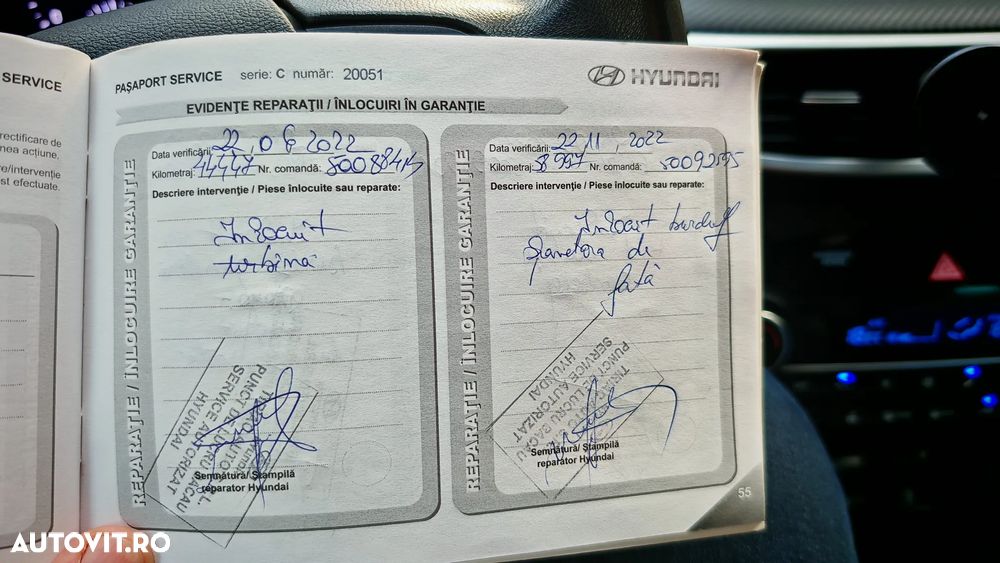 SERVICE
rectificare de
nea acțiune.
re/intervenție
st efectuate.
PAŞAPORT SERVICE serie: C număr: 20051
HYUNDAI
EVIDENŢE REPARAŢII / ÎNLOCUIRI ÎN GARANŢIE
REPARAŢIE / ÎNLOCUIRE GARANŢIE
Data verificării: 22.06 2022
Kilometraj: Nr. comandă:
Descriere intervenţie / Piese înlocuite sau reparate:
Înlocuit
turbină
PUNCT DE LUCRU BACAU
SERVICE AUTORIZAT
HYUNDAI
Semnătură/ Ştampilă
reparator Hyundai
REPARAŢIE / ÎNLOCUIRE GARANŢIE
Data verificării: 22 11, 2022
Kilometraj: Nr. comandă: 50092595
Descriere intervenţie / Piese înlocuite sau reparate:
Înlocuit burduf
planetara de
fată
PUNCT DE LUCRU BACAU
SERVICE AUTORIZAT
HYUNDAI
Semnătură/ Ştampilă
reparator Hyundai
55
AUTOVIT.RO